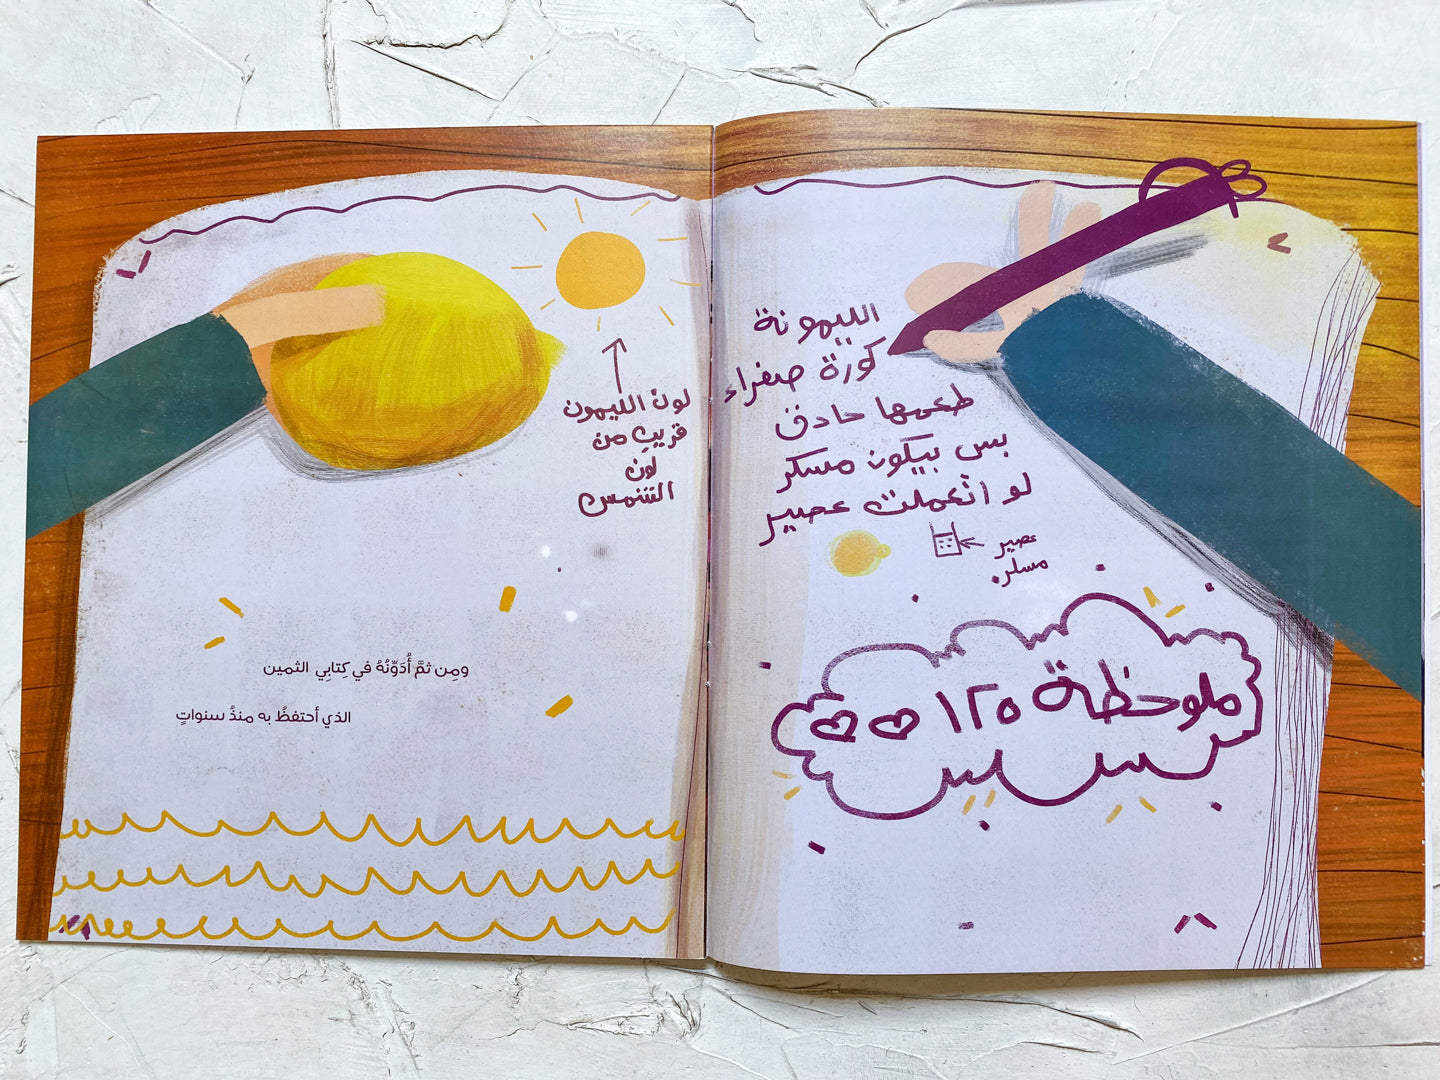 الليمونة
كورة صفراء
طعمها حادق
بس بيكون مسكر
لو اتعملت عصير
عصير
مسكر
ملوحظة ١٢٥
لون الليمون
قريب من
لون
الشمس
ومِن ثمَّ أُدَوِّنُهُ في كِتابِي الثمين
الذي أحتفظُ به منذُ سنواتٍ